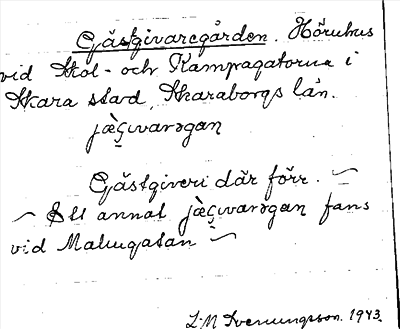 Gästgivaregården. Hörnhus
vid Skol- och Kämpagatorna i
Skara stad, Skaraborgs län.
jæ̀ʂıvarəgan
Gästgiveri där förr. ~
~ Ett annat jæ̀ʂıvarəgan fans
vid Malmgatan ~
L.M Svenungsson. 1943.